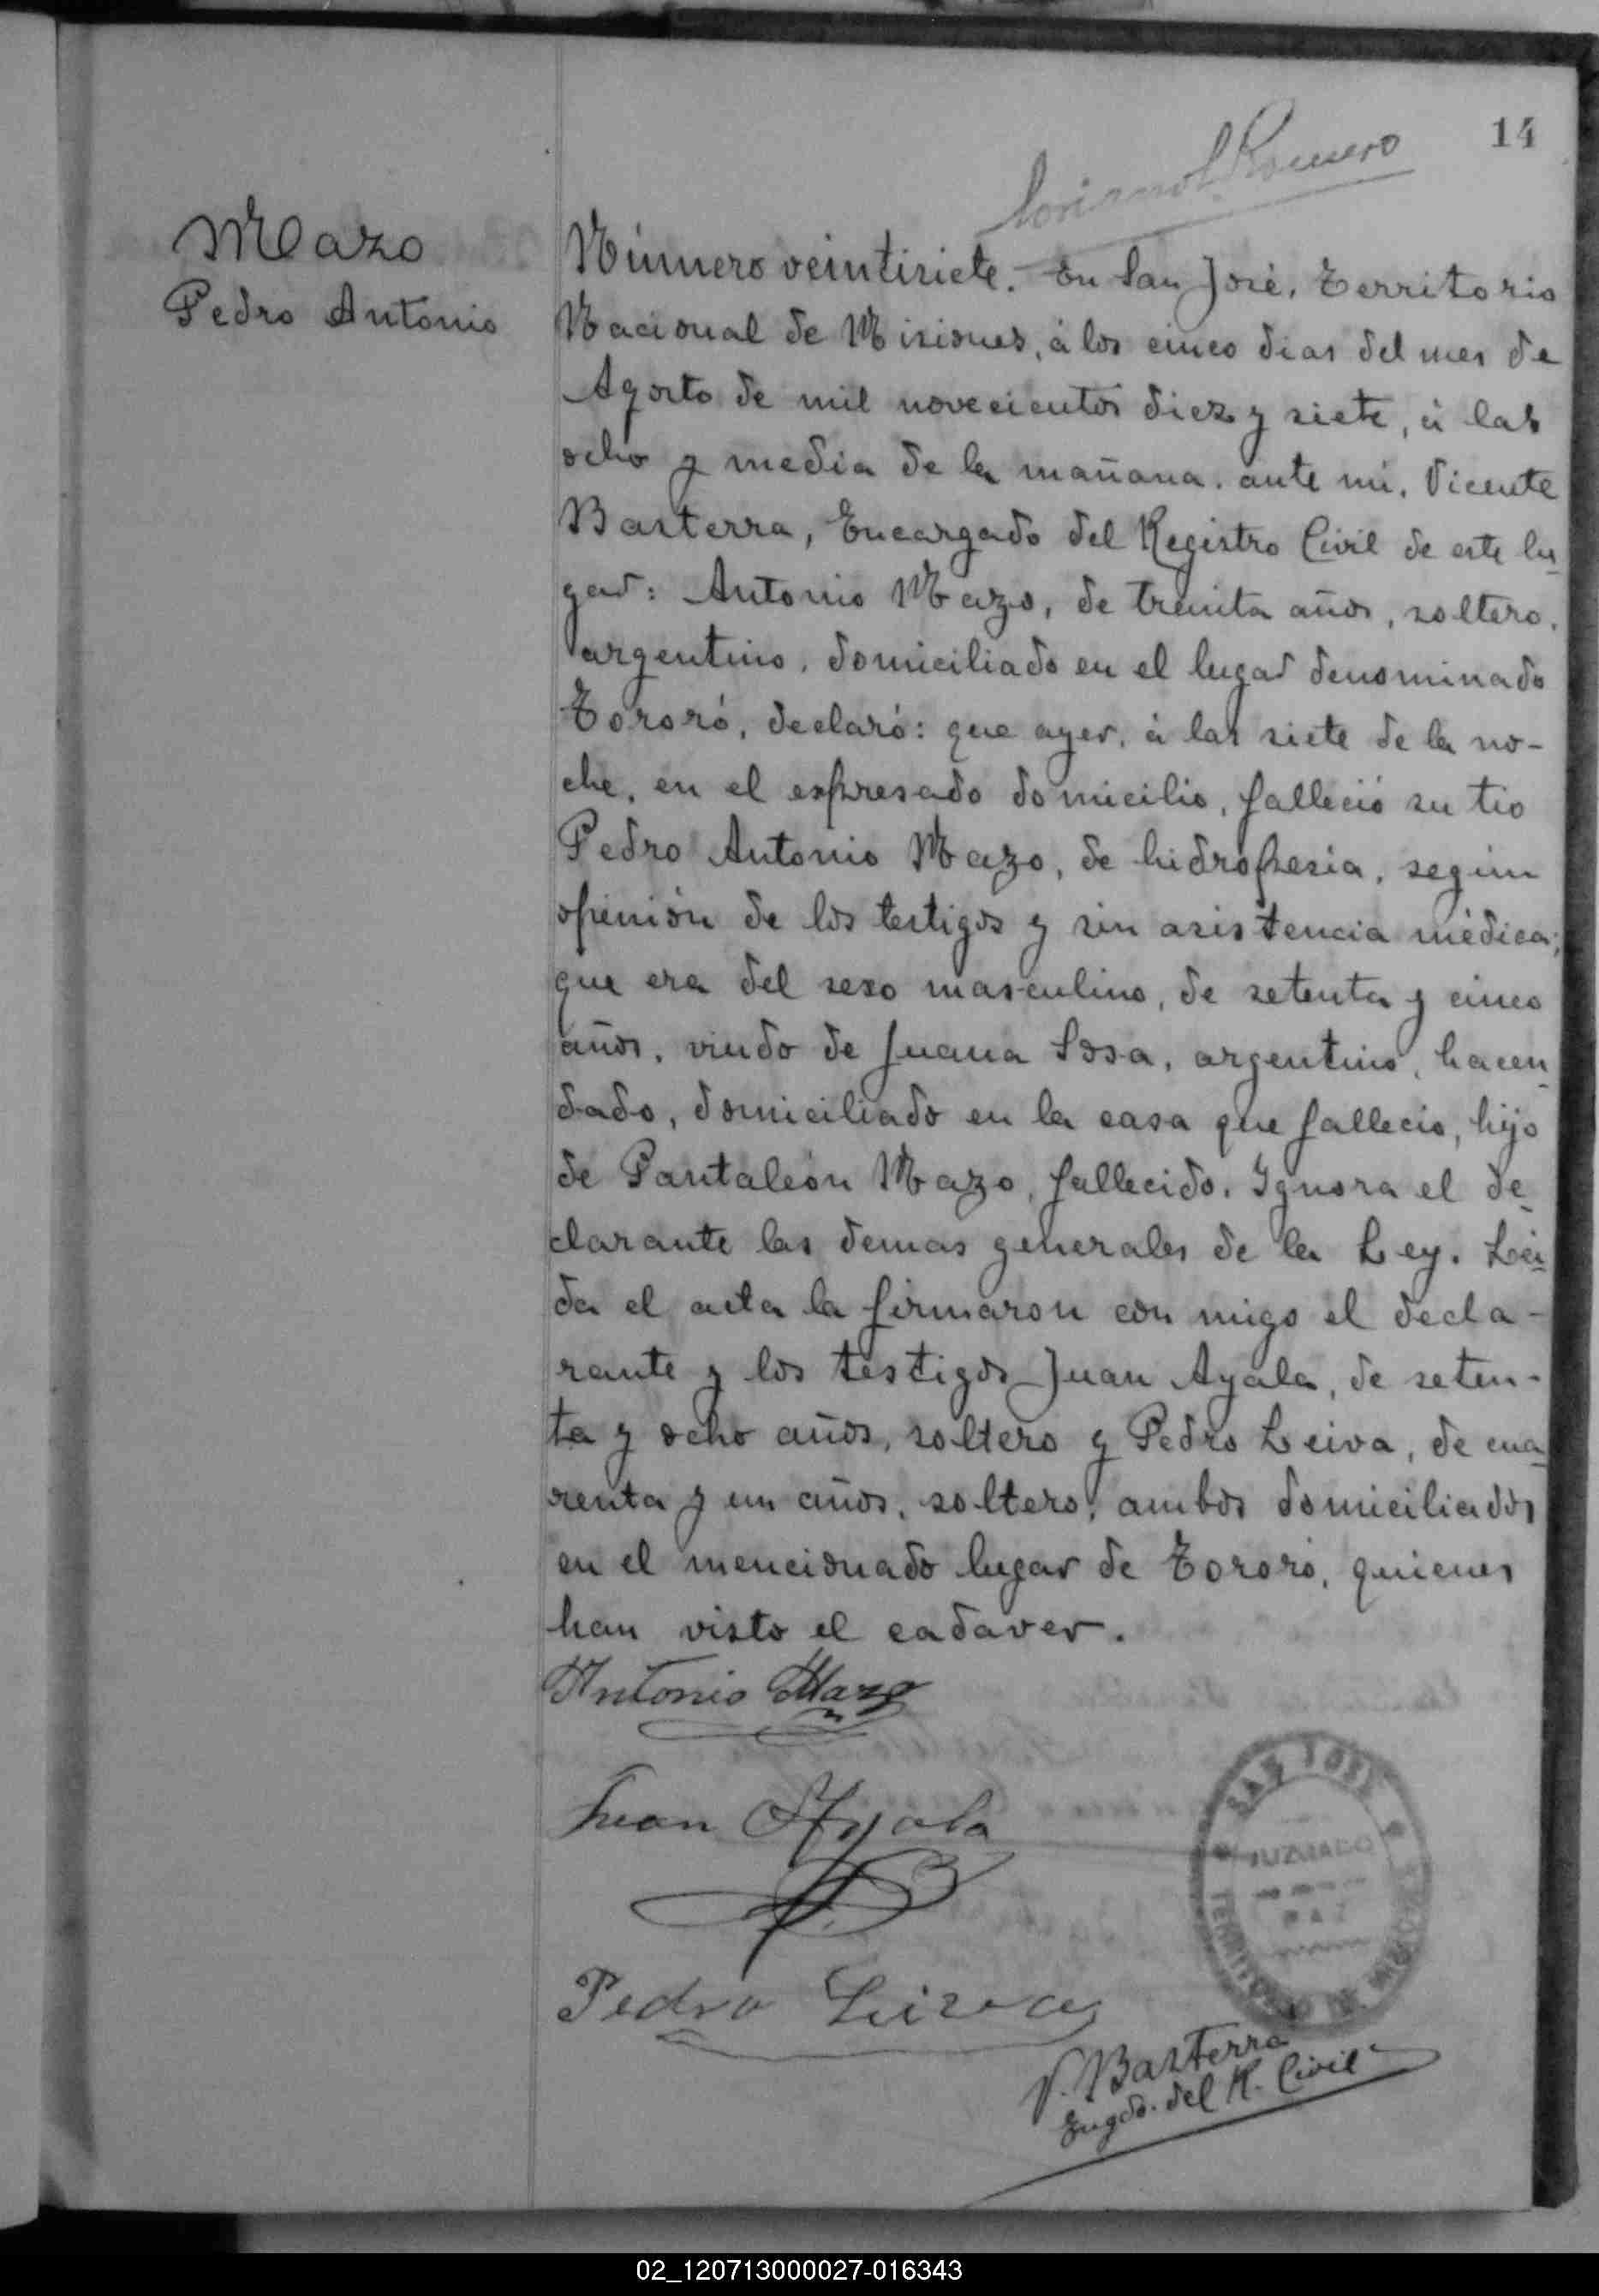 14
Romero
Mazo
Pedro Antonio
Número veintisiete. En San José, Territorio
Nacional de Misiones, á los cinco dias del mes de
Agosto de mil novecientos diez y siete, á las
ocho y media de la mañana, ante mí, Vicente
Basterra, Encargado del Registro Civil de este lu-
gar: Antonio Mazo, de treinta años, soltero,
argentino, domiciliado en el lugar denominado
Tororó, declaró: que ayer, á las siete de la no-
che, en el expresado domicilio, falleció su tio
Pedro Antonio Mazo, de hidropesia, según
opinión de los testigos y sin asistencia médica;
que era del sexo masculino, de setenta y cinco
años, viudo de Juana Sosa, argentino, hacen-
dado, domiciliado en la casa que fallecio, hijo
de Pantaleón Mazo, fallecido. Ignora el de-
clarante las demas generales de la Ley. Leí-
da el acta la firmaron con migo el decla-
rante y los testigos Juan Ayala, de seten-
ta y ocho años, soltero y Pedro Leiva, de cua-
renta y un años, soltero, ambos domiciliados
en el mencionado lugar de Tororó, quienes
han visto el cadaver.
Antonio Mazo
Juan Ayala
Pedro Leiva
SAN JOSE
JUZGADO
PAZ
TERRITORIO DE MISIONES
V. Basterra
Engdo. del R. Civil
02_120713000027-016343